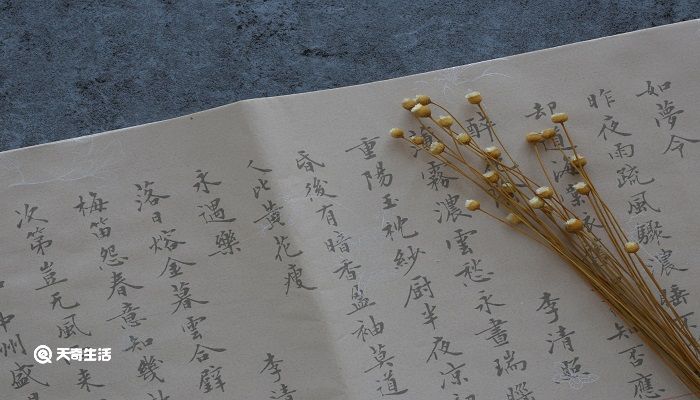 如夢令
昨夜雨疏風驟濃睡不
却道海棠依知否應
醉李清照
薄霧濃雲愁永晝瑞腦
重陽玉枕紗厨半夜涼初
昏後有暗香盈袖莫道
人比黃花瘦
永遇樂 李清
落日熔金暮雲合璧
梅笛怨春意知幾
次第豈无風來
中州盛
天奇生活